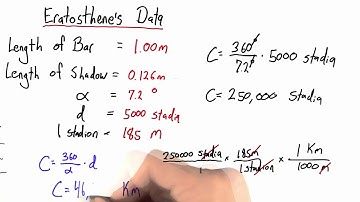 Eratosthene's Data
Length of Bar = 1.00m
Length of Shadow = 0.126m
α = 7.2°
d = 5000 stadia
1 stadion = 185 m
C = 360/α · d
C = 46, Km
C = 360°/7.2° · 5000 stadia
C = 250,000 Stadia
250000 stadia/1 × 185m/1 stadion × 1 Km/1000 m